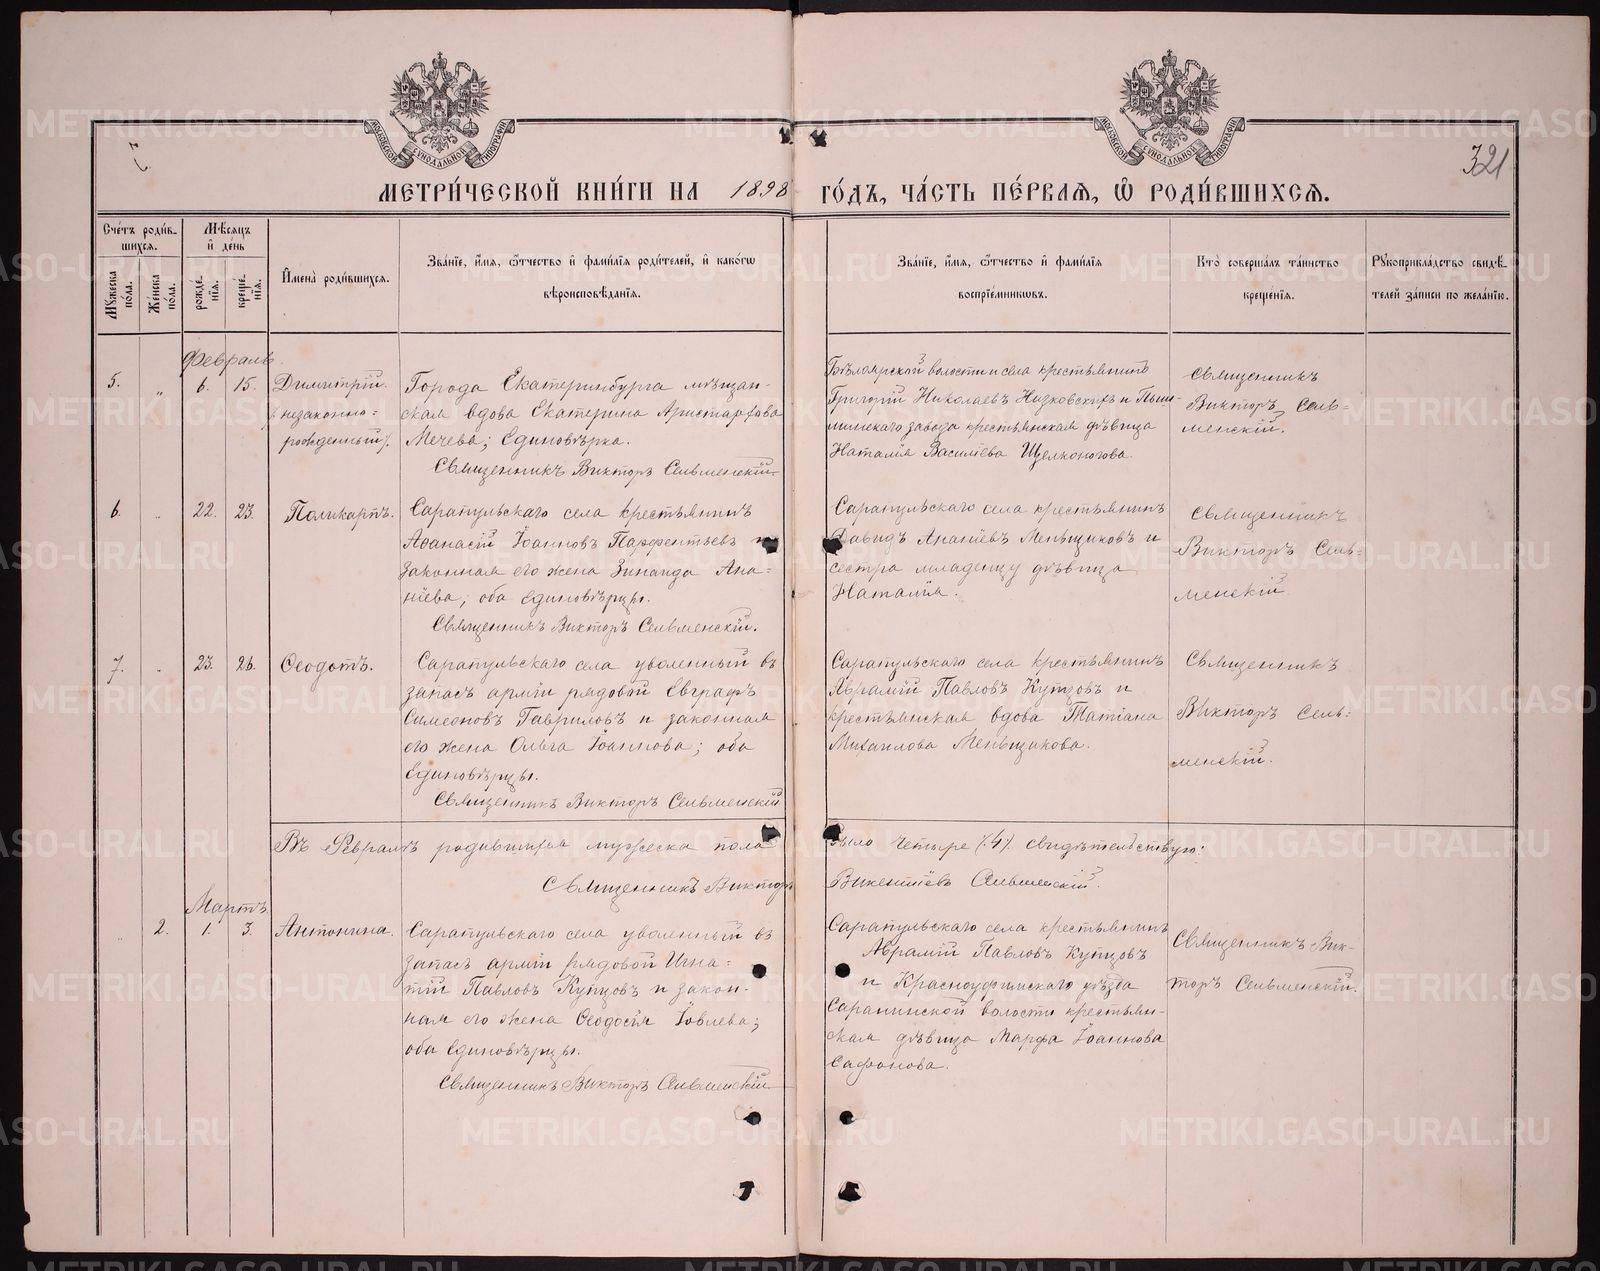 321
МЕТРИ́ЧЕСКОЙ КНИ́ГИ НА 1898 ГО́ДЪ, ЧА́СТЬ ПЕ́РВАЯ, Ѡ РОДИ́ВШИХСЯ.
Сче́тъ роди́в-
шихся.
Мѣ́сяцъ
и҆ де́нь
Му́жеска
по́ла.
Же́нска
по́ла.
рожде́-
нїя.
креще́-
нїя.
И҆мена̀ роди́вшихся.
Зва́нїе, и҆́мя, ѻ҆́тчество и҆ фами́лїя роди́телей, и҆ како́гѡ
вѣроисповѣ́данїя.
Зва́нїе, и҆́мя, ѻ҆́тчество и҆ фами́лїя
воспрїе́мникѡвъ.
Кто̀ соверша́лъ та́инство
креще́нїя.
Рукоприкла́дство свидѣ́-
телей за́писи по жела́нїю.
Февраль.
5. " 6. 15. Димитрій.
(незаконно=
рожденный).
Города Екатеринбурга мѣщан-
ская вдова Екатерина Аристархова
Мечева; Единовѣрка.
Священникъ Викторъ Сельменскій.
Бѣлоярской волости и села крестьянинъ
Григорій Николаевъ Низковскихъ и Пыш-
минскаго завода крестьянская дѣвица
Наталія Василіева Щелконогова.
Священникъ
Викторъ Сель-
менскій.
6. " 22. 23. Поликарпъ.
Сарапульскаго села крестьянинъ
Аѳанасій Іоанновъ Парфентьевъ и
законная его жена Зинаида Ана-
ніева; оба единовѣрцы.
Священникъ Викторъ Сельменскій.
Сарапульскаго села крестьянинъ
Давидъ Ананіевъ Меньщиковъ и
сестра младенцу дѣвица
Наталія.
Священникъ
Викторъ Сель-
менскій.
7. " 23. 26. Ѳеодотъ.
Сарапульскаго села уволенный въ
запасъ арміи рядовой Евграфъ
Симеоновъ Гавриловъ и законная
его жена Ольга Іоаннова; оба
Единовѣрцы.
Священникъ Викторъ Сельменскій
Сарапульскаго села крестьянинъ
Аврамій Павловъ Купцовъ и
крестьянская вдова Татіана
Михаилова Меньщикова.
Священникъ
Викторъ Сель-
менскій.
Въ Февралѣ родившихся мужеска пола было четыре (4). свидѣтельствую:
Священникъ Викторъ Викентіевъ Сельменскій.
Мартъ
" 2. 1. 3. Антонина.
Сарапульскаго села уволенный въ
запасъ арміи рядовой Игна-
тій Павловъ Купцовъ и закон-
ная его жена Ѳеодосія Іовлева;
оба Единовѣрцы.
Священникъ Викторъ Сельменскій.
Сарапульскаго села крестьянинъ
Аврамій Павловъ Купцовъ
и Красноуфимскаго уѣзда
Саранинской волости крестьян-
ская дѣвица Марфа Іоаннова
Сафонова.
Священникъ Вик-
торъ Сельменскій.
METRIKI.GASO-URAL.RU